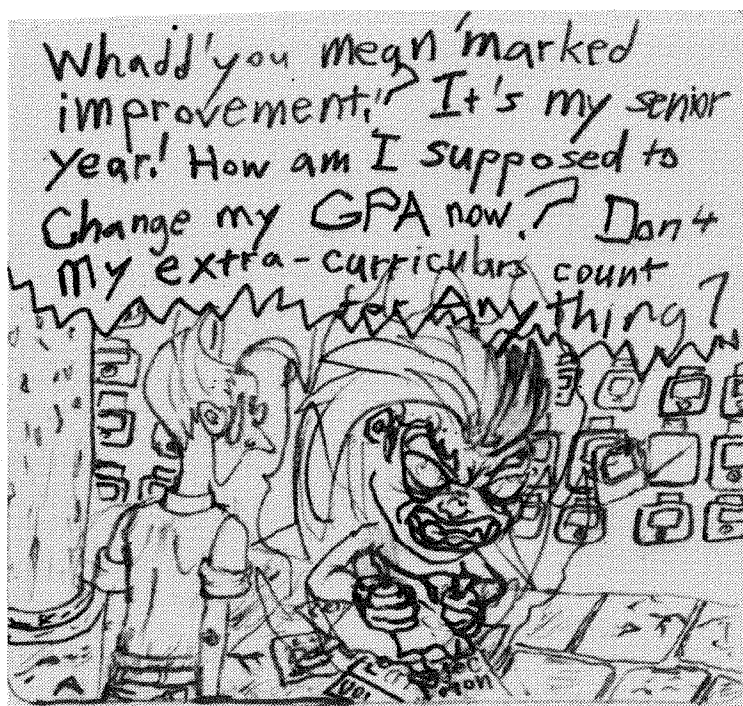 Whadd'you mean 'marked
improvement.'? It's my senior
year! How am I supposed to
Change my GPA now? Don't
My extra-curriculars count
for Anything?